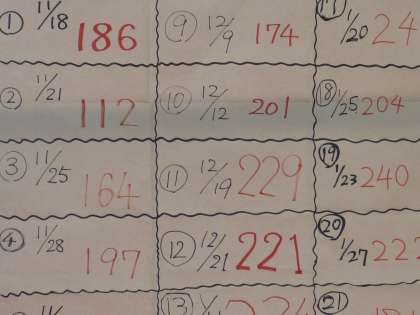 ① 11/18 186
② 11/21 112
③ 11/25 164
④ 11/28 197
⑨ 12/9 174
⑩ 12/12 201
⑪ 12/19 229
⑫ 12/21 221
⑬
1/20 24
⑱ 1/25 204
⑲ 1/23 240
⑳ 1/27 222
㉑